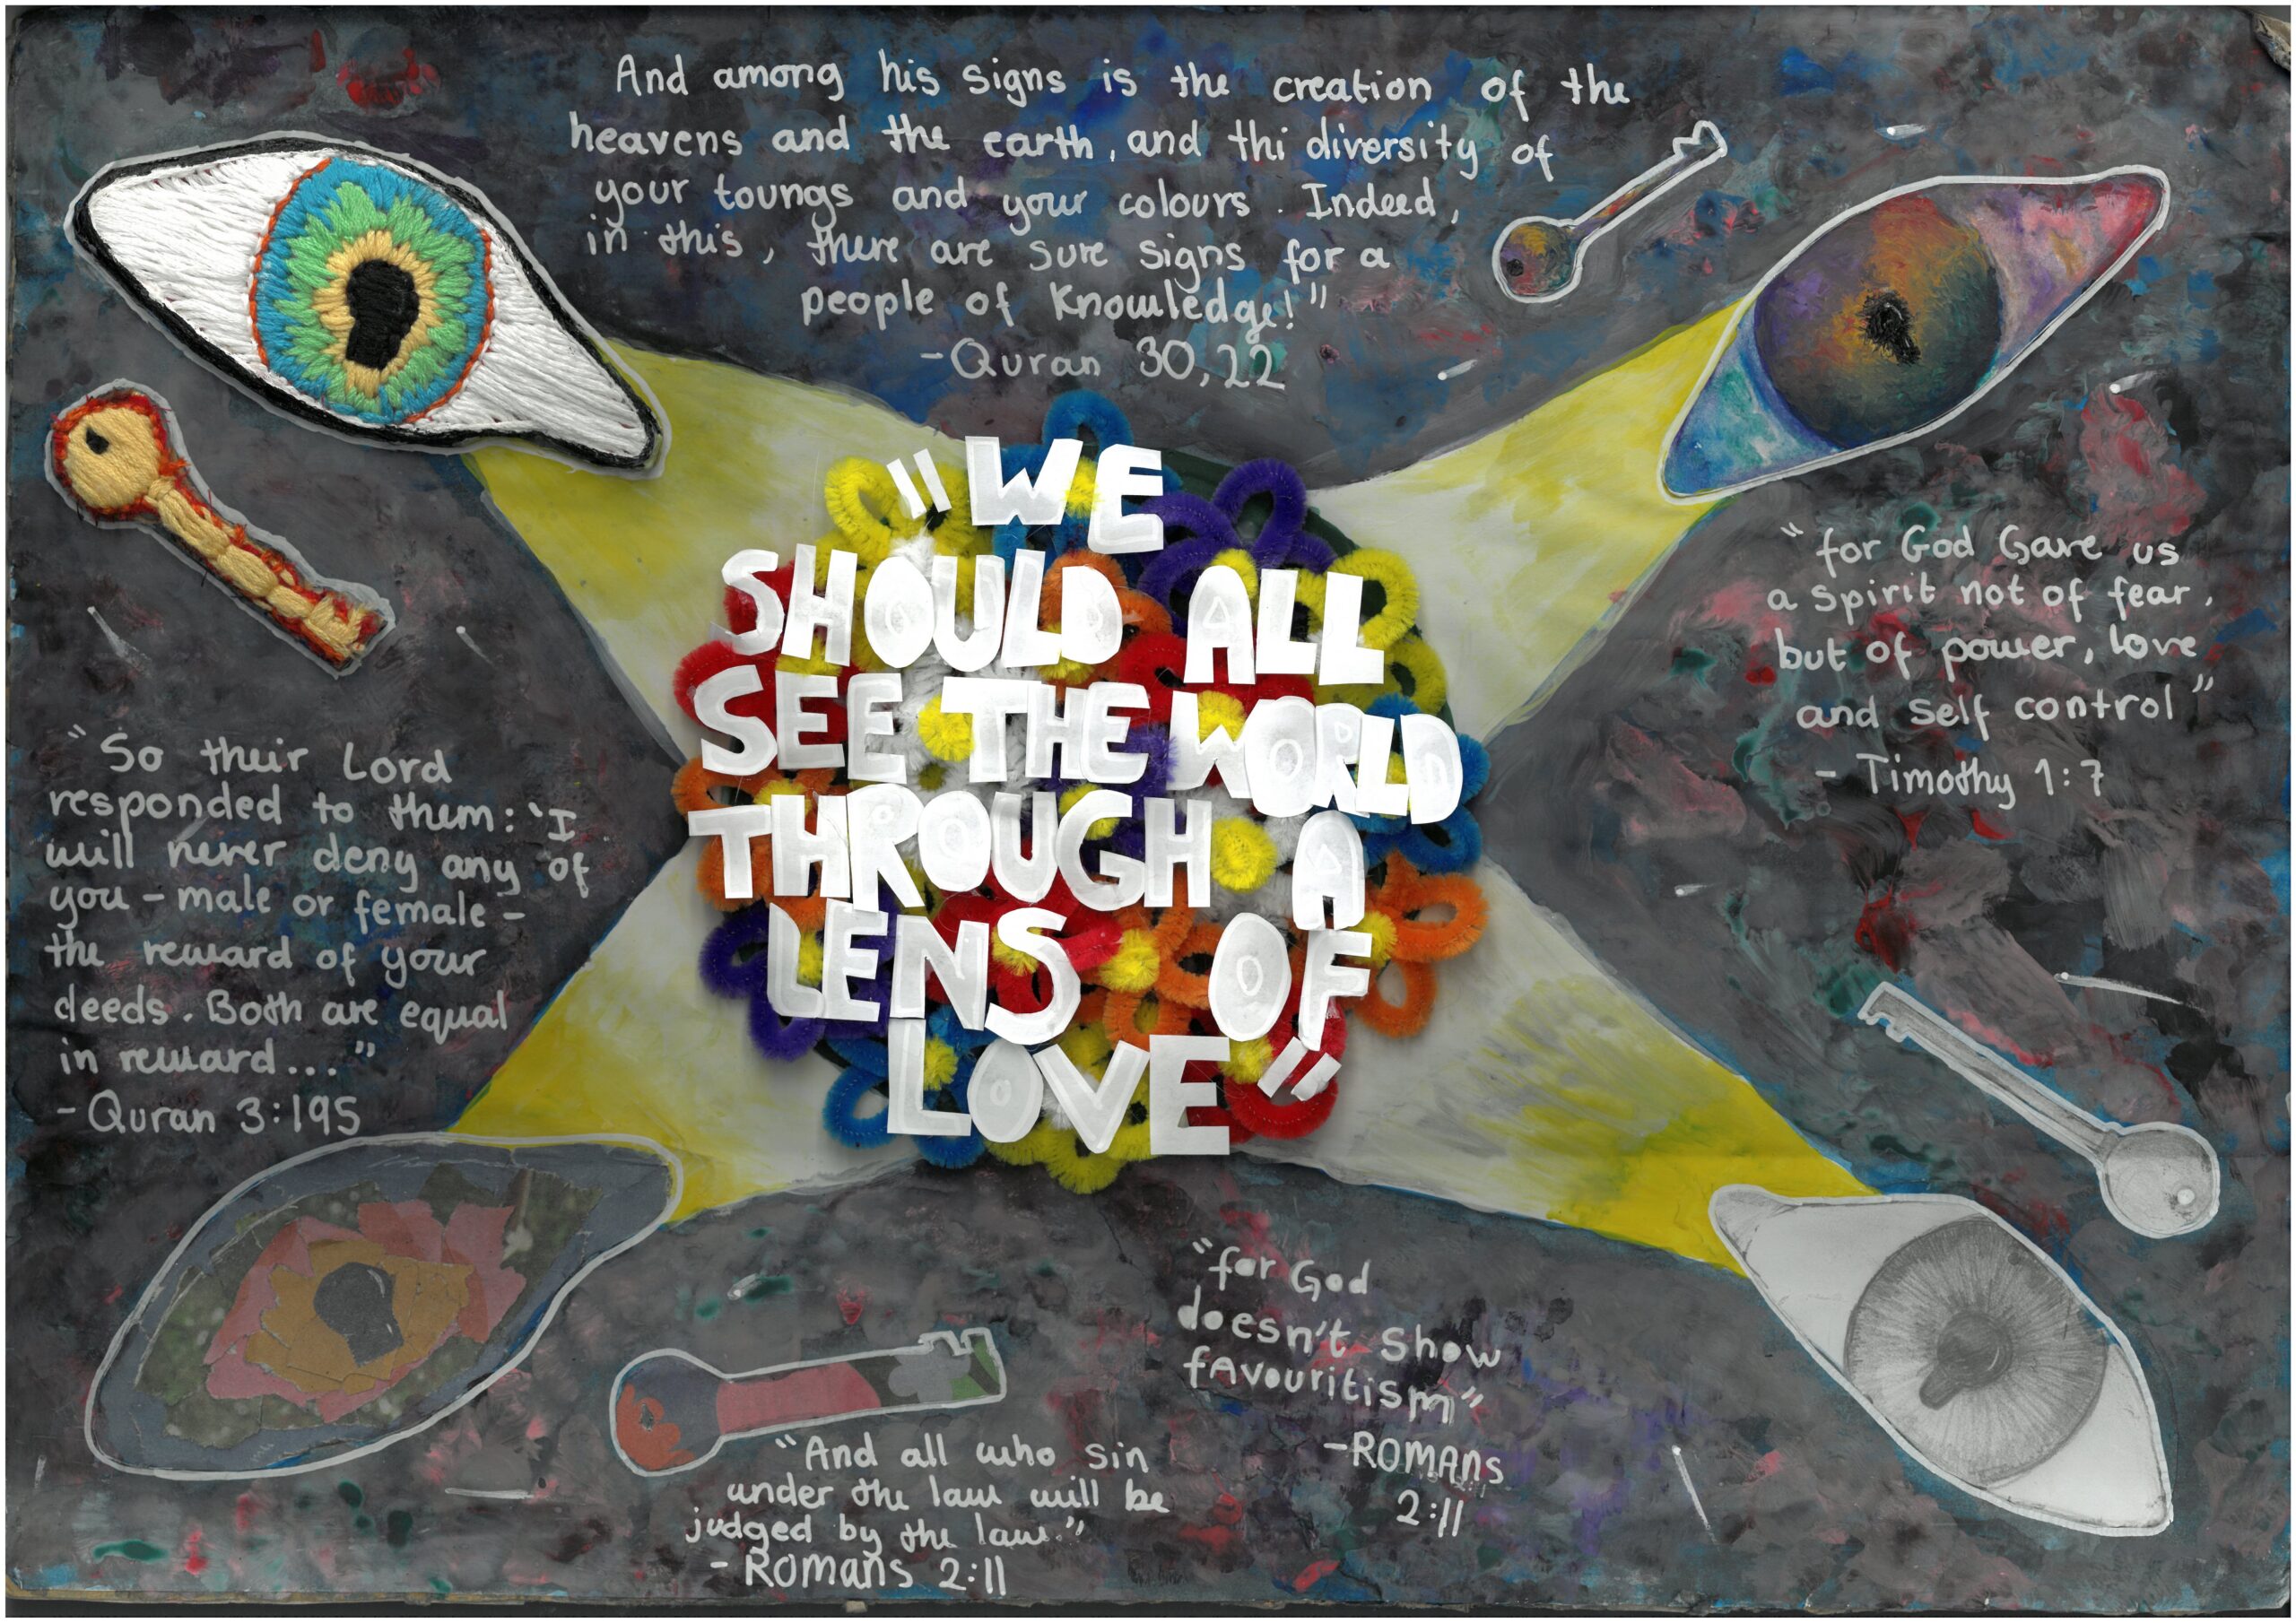 And among his signs is the creation of the
heavens and the earth, and thi diversity of
your toungs and your colours. Indeed,
in this, there are sure signs for a
people of knowledge!"
-Quran 30,22
"WE
SHOULD ALL
SEE THE WORLD
THROUGH A
LENS OF
LOVE"
"for God Gave us
a spirit not of fear,
but of power, love
and self control"
- Timothy 1:7
"So their Lord
responded to them: 'I
will never deny any of
you - male or female -
the reward of your
deeds. Both are equal
in reward..."
-Quran 3:195
"for God
doesn't show
fAvouritism"
-ROMAns
2:11
"And all who sin
under the law will be
judged by the law."
- Romans 2:11